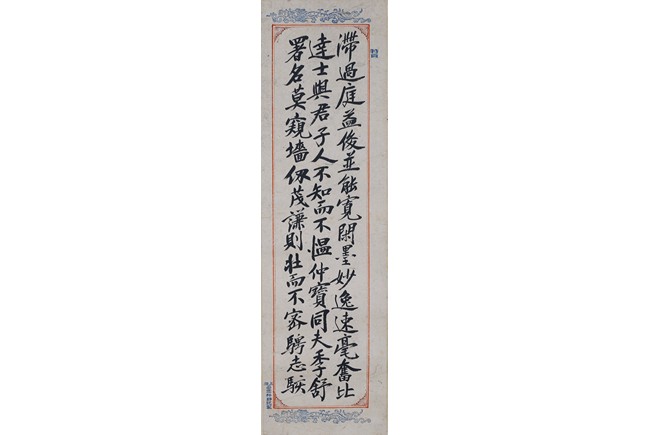 滯過庭益俊並能寬閑墨妙逸速毫奮比
達士與君子人不知而不愠仲寶同夫季舒
署名莫窺墻仞茂謙則壯而不密騁志駭